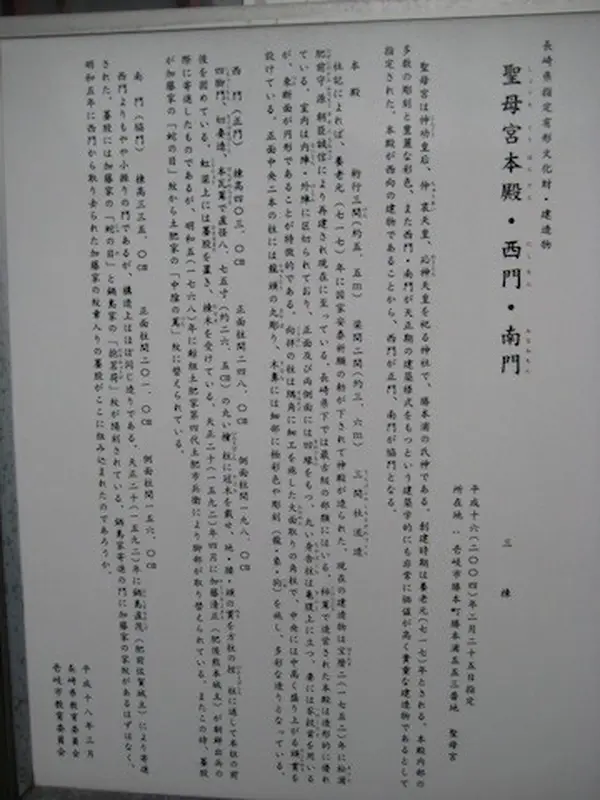 長崎県指定有形文化財・建造物
聖母宮本殿・西門・南門
三棟
平成十六(二〇〇四)年二月二十五日指定
所在地 壱岐市勝本町勝本浦五五三番地 聖母宮
聖母宮は神功皇后、仲哀天皇、応神天皇を祀る神社で、勝本浦の氏神である。創建時期は養老元(七一七)年とされる。本殿内部の
多数の彫刻と豊麗な彩色、また西門・南門が天正期の建築様式をもつという建築学的にも非常に価値が高く貴重な建造物であるとして
指定された。本殿が西向の建物であることから、西門が正門、南門が脇門となる。
本殿 桁行三間(約五、五m) 梁間二間(約三、六m) 三間社流造
社記によれば、養老元(七一七)年に国家安泰祈願の勅が下されて神殿が造られた。現在の建造物は宝暦二(一七五二)年に松浦
肥前守源朝臣誠信により再建され現在に至っている。長崎県下では最古級の部類にはいる。柿葺で造営された本殿は造形的に優れ
ている。室内は内陣・外陣に区切られており、正面及び両側面には四縁をもつ。丸い身舎柱は亀腹上に立つ。妻には家扠首を用いる
が、束断面が円形であることが特徴的である。向拝の柱は隅角に細工を施した大面取りの角柱で、中央には中高く盛り上がる頭貫を
設けている。正面中央二本の柱には龍頭の丸彫り、木鼻には細部に極彩色や彫刻(龍・象・狗)を施し、多彩な造りなっている。
西門(正門) 棟高四〇三、〇㎝ 正面柱間二四八、〇㎝ 側面柱間一九八、〇㎝
四脚門、切妻造、本瓦葺で直径八、七五寸(約二六、五㎝)の丸い檜柱に冠木を載せ、地・腰・頭の貫を方柱の控柱に通して本柱の前
後を固めている。虹梁上には蟇股を置き、棟木を受けている。天正二十(一五九二)年四月に加藤清正(肥後熊本城主)が朝鮮出兵の
際に寄進したものであるが、明和五(一七六八)年に鯨組土肥家第四代土肥市兵衛により脚部が取り替えられている。またこの時、蟇股
が加藤家の「蛇の目」紋から土肥家の「中陰の蔦」紋に替えられている。
南門(脇門) 棟高三三五、〇㎝ 正面柱間二〇一、〇㎝ 側面柱間一五六、〇㎝
西門よりもやや小振りの門であるが、構造上はほぼ同じ造りである。天正二十(一五九二)年に鍋島直茂(肥前佐賀城主)により寄進
された。蟇股には加藤家の「蛇の目」と鍋島家の「抱茗荷」紋が陽刻されている。鍋島家寄進の門に加藤家の家紋があるはずはなく、
明和五年に西門から取り去られた加藤家の紋章入りの蟇股がここに組み込まれたのであろうか。
平成十八年三月
長崎県教育委員会
壱岐市教育委員会